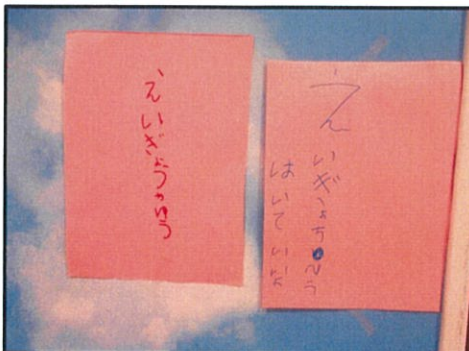 えいぎょうちゅう
えいぎょうちゅう
はいていいよ